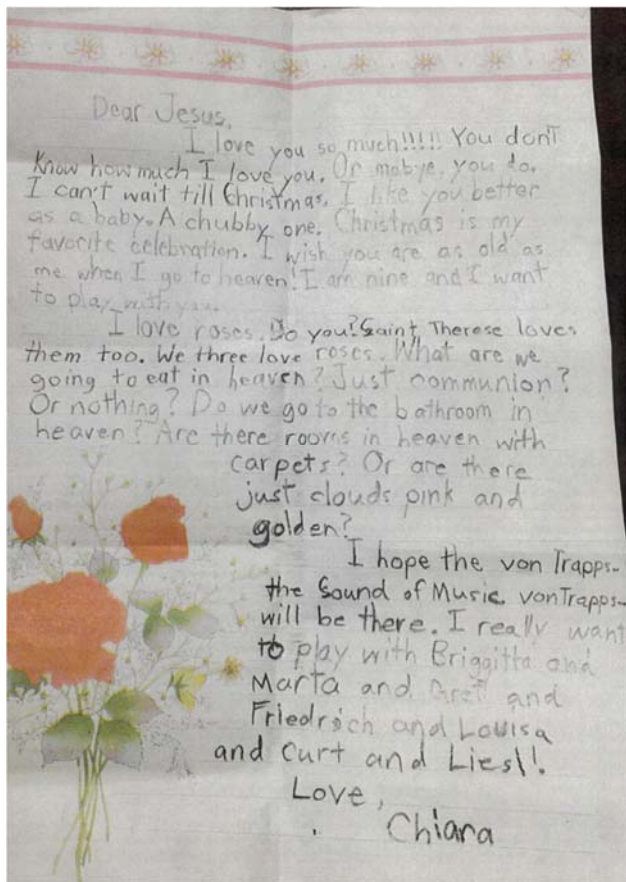 Dear Jesus,
I love you so much!!!!! You don't
know how much I love you. Or mabye, you do.
I can't wait till Christmas. I like you better
as a baby. A chubby one. Christmas is my
favorite celebration. I wish you are as old as
me when I go to heaven! I am nine and I want
to play with you.
I love roses. Do you? Saint Therese loves
them too. We three love roses. What are we
going to eat in heaven? Just communion?
Or nothing? Do we go to the bathroom in
heaven? Are there rooms in heaven with
carpets? Or are there
just clouds pink and
golden?
I hope the von Trapps-
the Sound of Music vonTrapps-
will be there. I really want
to play with Briggitta and
Marta and Gretl and
Friedrich and Louisa
and Curt and Liesl!
Love,
Chiara